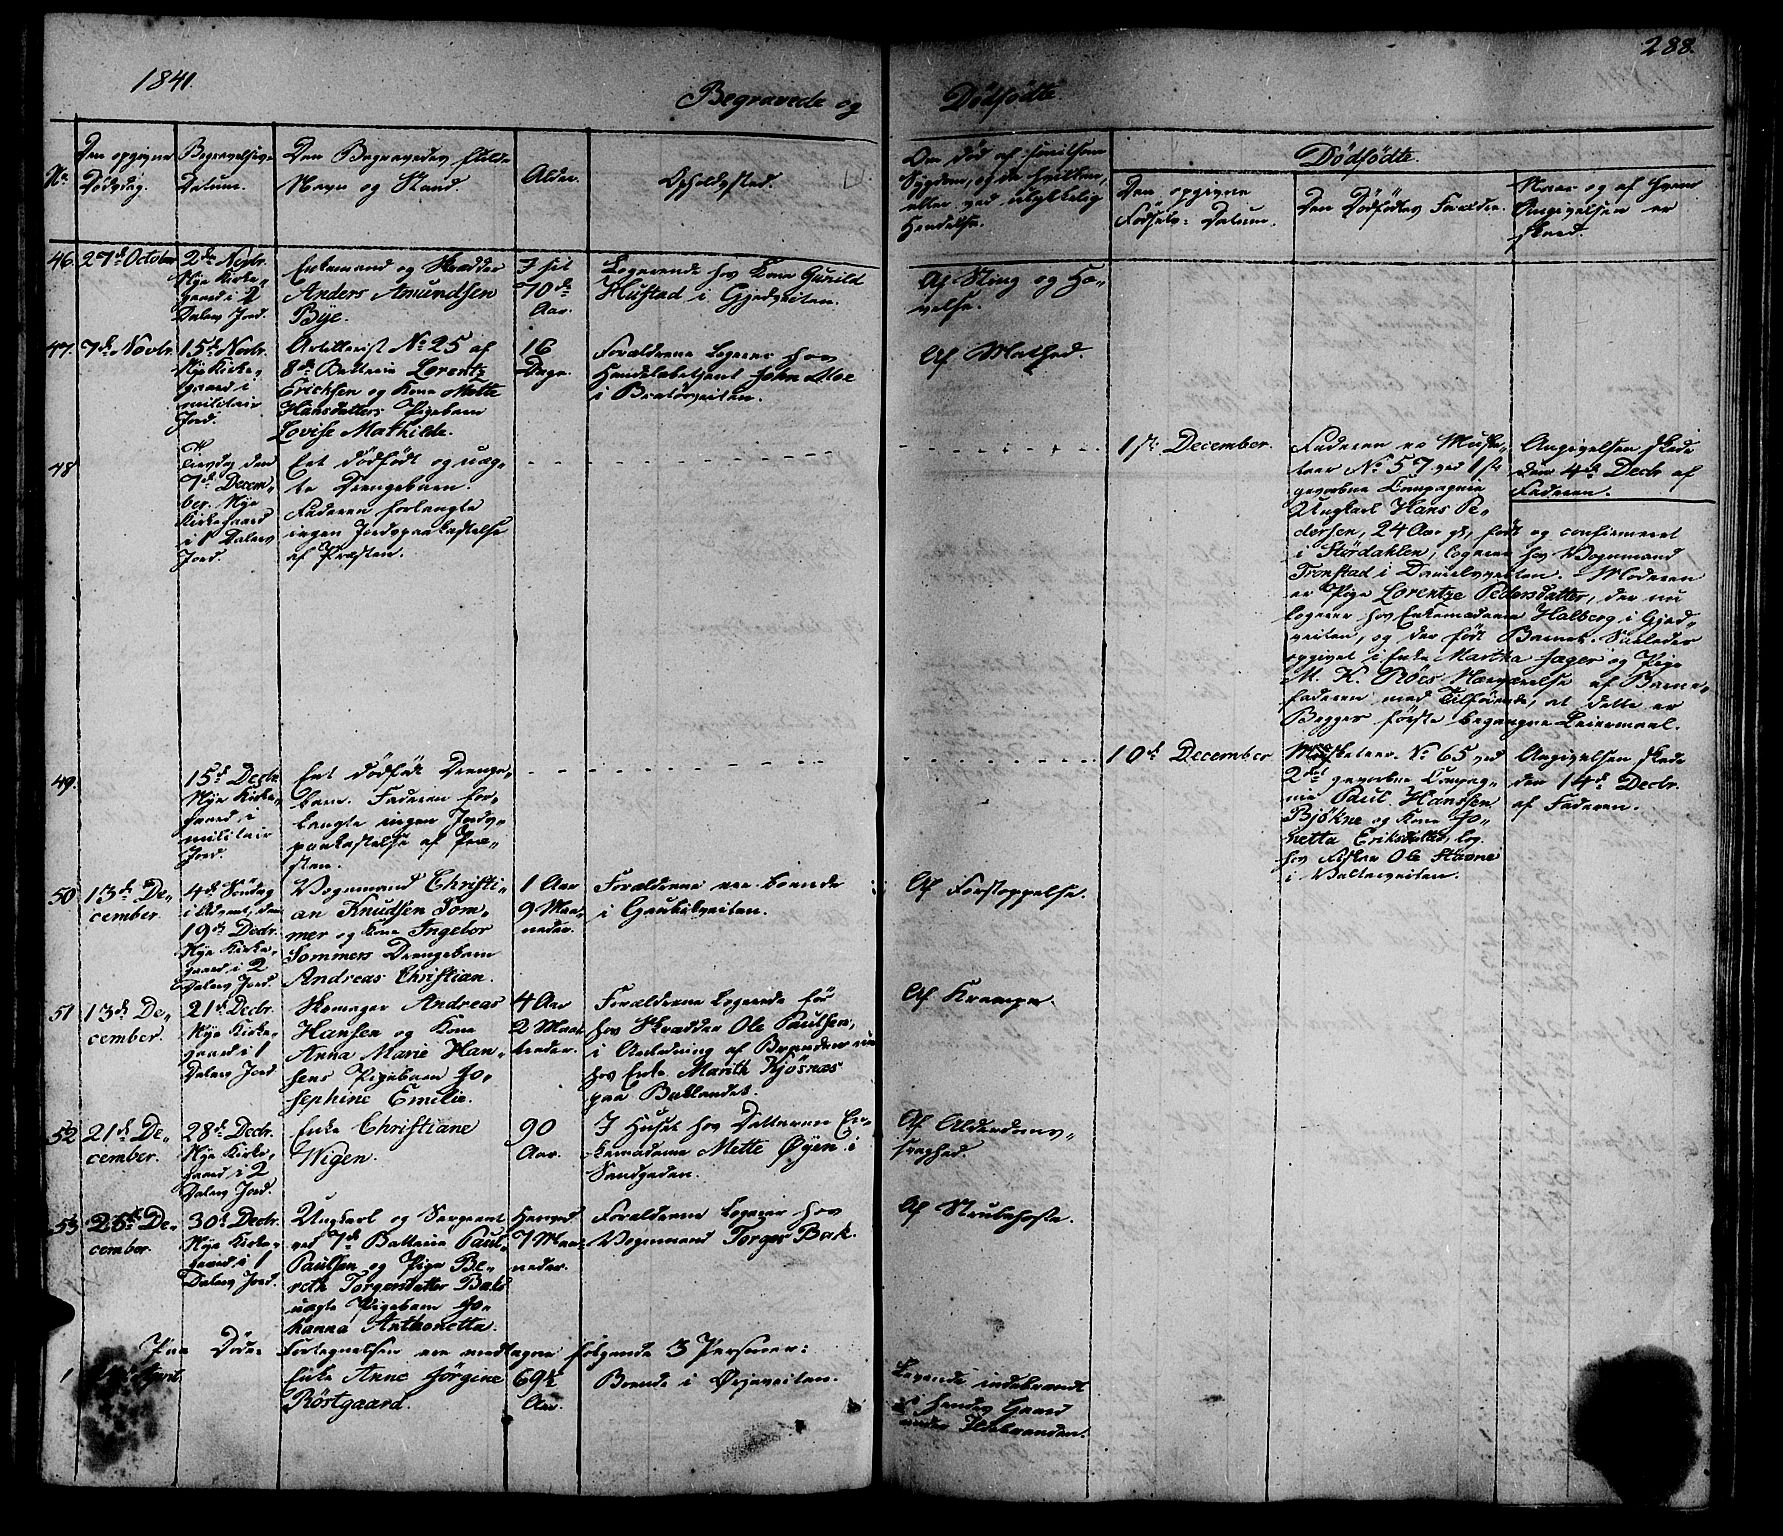 288.
1841.
Begravede og Dødfødte.
No.
Den opgivne
Dødsdag.
Begravelses-
Datum.
Den Begravedes fulde
Navn og Stand
Alder.
Opholdssted.
Om død af smitsom
Sygdom, og da hvilken,
eller ved ulykkelig
Hendelse.
Dødfødte.
Den opgivne
Fødsels-Datum.
Den Dødfødtes Forældre.
Naar og af hvem
Angivelsen er
skeed.
46.
27de October
2den Novbr.
Nye Kirke-
gaard i 2
Dalers Jord.
Enkemand og Skrædder
Anders Amundsen
Bye.
I sit
70de
Aar.
Logerende hos Kone Gunild
Hustad i Gjedveiten.
Af Sting og Ho-
velse.
47.
7de Novbr.
15de Novbr.
Nye Kirke-
gaard i
militair
Jord.
Artillerist No 25 af
8de Batterie Lorentz
Erichsen og Kone Mette
Hansdatters Pigebarn
Lovise Mathilde.
16
Dage.
Forældrene logerer hos
Handelsbetjent John Moe
i Bratørveiten.
Af Mathed.
48
Tirsdag den
7de Decem-
ber. Nye
Kirkegaard
i 1 Dalers
Jord.
Eet dødfødt og uæg-
te Drengebarn.
Faderen forlangte
ingen Jordspaakastelse
af Præsten.
1ste December.
Faderen er Muske-
teer No 57 ved 1ste
gevorbne Compagnie
Ungkarl Hans Pe-
dersen, 24 Aar gl., født og confirmeret
i Størdahlen, logerer hos Vognmand
Tronstad i Danielsveiten. Moderen
er Pige Lorentze Pedersdatter, der nu
logerer hos Enkemadame Halberg i Gjed-
veiten, og der født Barnet. Saaledes
opgivet i Enke Martha Jæger og Pige
M. K. Röes Nærværelse af Barne-
faderen med Tilføiende, at dette er
Begges første begangne Leiermaal.
Angivelsen skede
den 4de Decbr. af
Faderen.
49.
15de Decbr.
Nye Kirke-
gaard i
militair
Jord.
Eet dødfødt Drenge-
barn. Faderen for-
langte ingen Jords-
paakastelse af Præ-
sten.
10de December
Musketeer No 65 ved
2det gevorbne Compag-
nie Paul Hanssen
Bjøkne og Kone Jo-
hetta Eriksdatter, log.
hos Fisker Ole Stavne
i Volterveiten.
Angivelsen skede
den 14de Decbr.
af Faderen.
50
13de De-
cember.
4de Søndag
i Advent, den
19de Decbr.
Nye Kirke-
gaard i 2
Dalers Jord.
Vognmand Christi-
an Knudsen Som-
mer og Kone Ingebor
Sommers Drengebarn
Andreas Christian.
1 Aar
9 Maa-
neder.
Forældrene ere boende
i Gaubækveiten.
Af Forstoppelse.
51
13de De-
cember.
21de Decbr.
Nye Kirke-
gaard i 1
Dalers Jord
Skomager Andreas
Hansen og Kone
Anna Marie Han-
sens Pigebarn Jo-
sephine Emelie.
4 Aar
2 Maa-
neder.
Forældrene logerede før
hos Skrædder Ole Paulsen,
i Anledning af Branden nu
hos Enke Marith Kjøsnæs
paa Baklandet.
Af Krampe.
52
21de De-
cember.
28de Decbr.
Nye Kirke-
gaard i 2
Dalers Jord.
Enke Christiane
Wigen.
90
Aar.
I Huset hos Datteren En-
kemadame Mette Øyen i
Sandgaden.
Af Alderdoms-
svaghed
53
26de De-
cember.
30de Decbr.
Nye Kirke-
gaard i 1
Dalers Jord.
Ungkarl og Sergeant
ved 7de Batterie Paul
Paulsen og Pige Be-
reth Torgersdatter Baks
uægte Pigebarn Jo-
hanna Anthonetta.
Henved
7 Maa-
neder.
Forældrene logerer hos
Vognmand Torger Bak.
Af Strubehoste.
Paa Døde-Fortegnelsen ere medtagne følgende 3 Personer:
1
April
Enke Anne Jørgine
Röstgaard.
69½
Aar.
Boende i Ørjaveiten.
Levende indebrændt
i hendes Gaard
under Ildebranden.